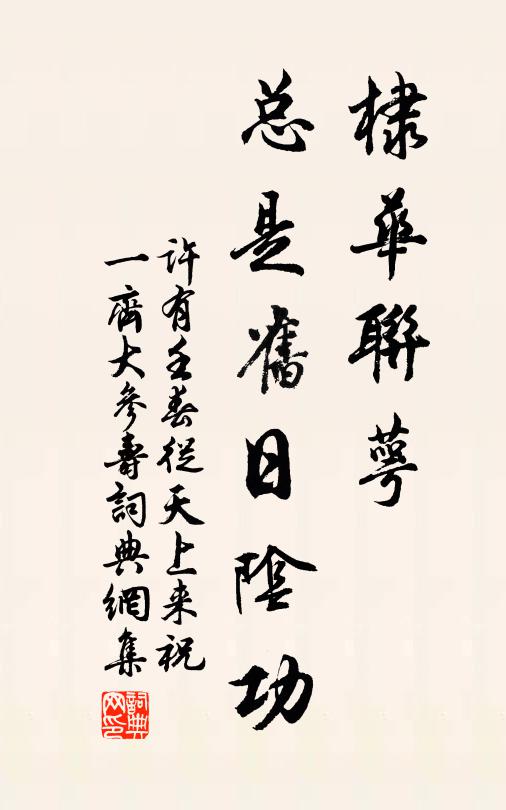 棣華聯萼
总是舊日陰功
许有壬春從天上来祝
一齊大參壽詞典網集
詞典网印